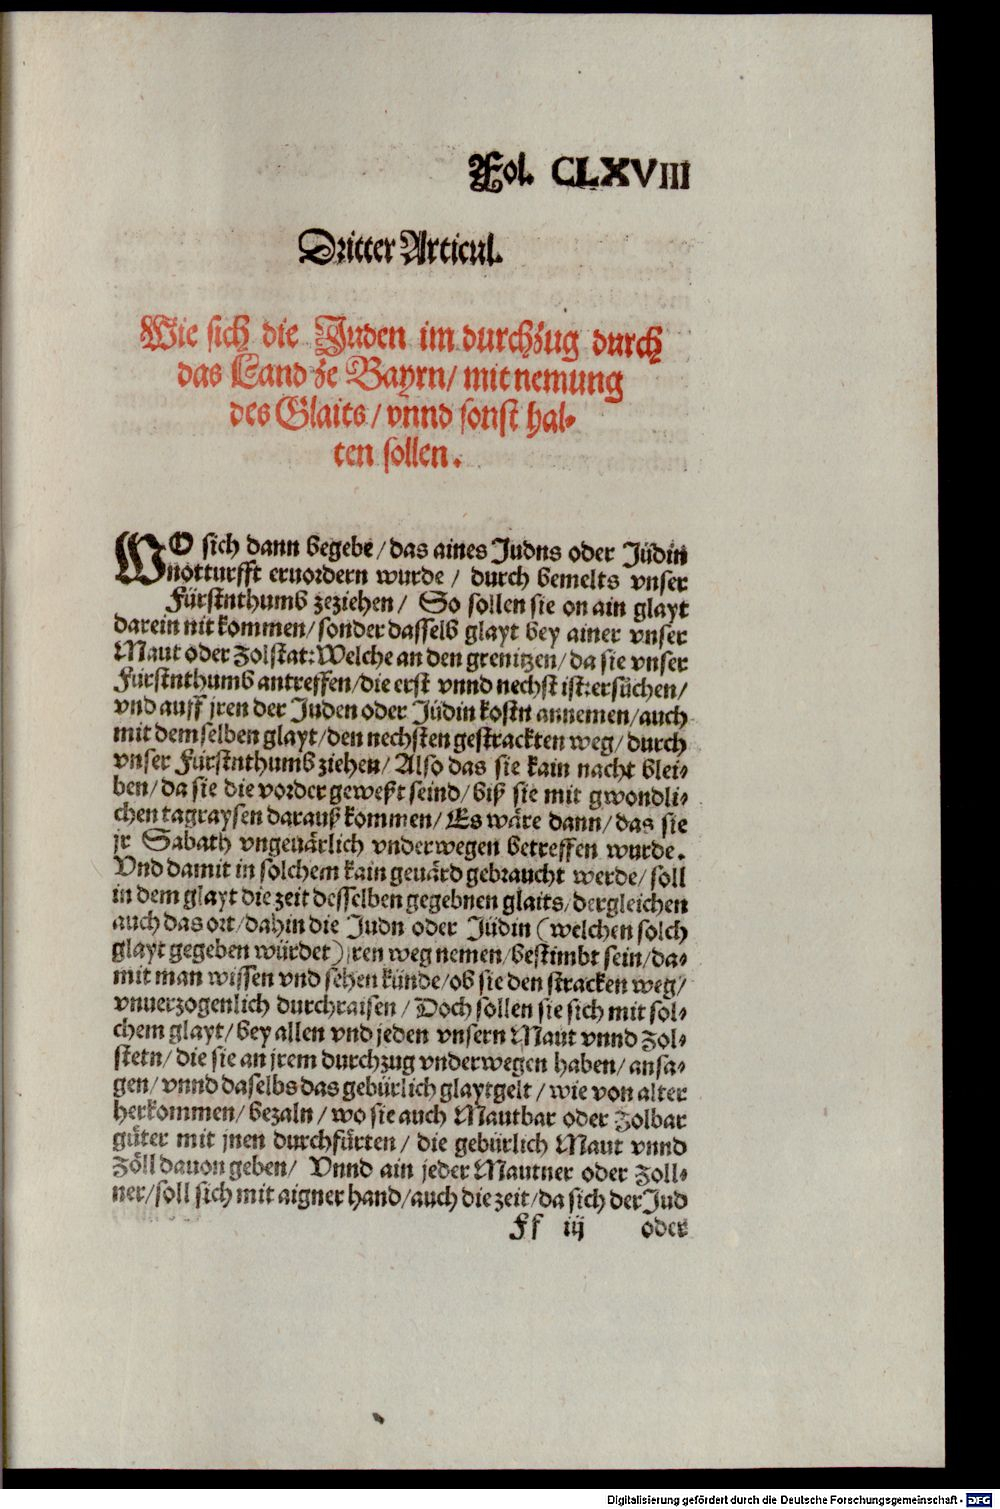 Fol. CLXVIII
Dritter Articul.
Wie sich die Juden im durchzug durch
das Land ze Bayrn/ mit nemung
des Glaits/ vnnd sonst hal-
ten sollen.
WO sich dann begebe/ das aines Judns oder Jüdin
notturfft eruordern wurde/ durch bemelts vnser
Fürstnthumb zeziehen/ So sollen sie on ain glayt
darein nit kommen/ sonder dasselb glayt bey ainer vnser
Maut oder Zolstat: Welche an den grenitzen/ da sie vnser
Fürstnthumb antreffen/ die erst vnnd nechst ist: ersüchen/
vnd auff jren der Juden oder Jüdin kostn annemen/ auch
mit demselben glayt/ den nechsten gestrackten weg/ durch
vnser Fürstnthumb ziehen/ Also das sie kain nacht blei-
ben/ da sie die vorder geweßt seind/ biß sie mit gwondli-
chen tagraysen darauß kommen/ Es wäre dann/ das sie
jr Sabath vngeuärlich vnderwegen betreffen wurde.
Vnd damit in solchem kain geuärd gebraucht werde/ soll
in dem glayt die zeit desselben gegebnen glaits/ dergleichen
auch das ort/ dahin die Judn oder Jüdin (welchen solch
glayt gegeben würdet) jren weg nemen/ bestimbt sein/ da-
mit man wissen vnd sehen künde/ ob sie den stracken weg/
vnuerzogenlich durchraisen/ Doch sollen sie sich mit sol-
chem glayt/ bey allen vnd jeden vnsern Maut vnnd Zol-
stetn/ die sie an jrem durchzug vnderwegen haben/ ansa-
gen/ vnnd daselbs das gebürlich glaytgelt/ wie von alter
herkommen/ bezaln/ wo sie auch Mautbar oder Zolbar
güter mit jnen durchfürten/ die gebürlich Maut vnnd
Zöll dauon geben/ Vnnd ain jeder Mautner oder Zoll-
ner/ soll sich mit aigner hand/ auch die zeit/ da sich der Jud
Ff iij oder
Digitalisierung gefördert durch die Deutsche Forschungsgemeinschaft - DFG